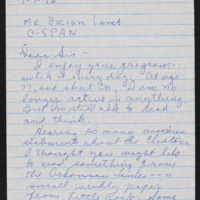 Mr. Brian Lamb
C-SPAN
Dear Sir -
I enjoy your program -
watch it every day. At age
77, and shut in, I am no
longer active in anything.
But I'm still able to read
and think.
Hearing so many
statements about the Clintons,
I thought you might like
to read something from
the Arkansas
small weekly paper
from Little Rock. Some